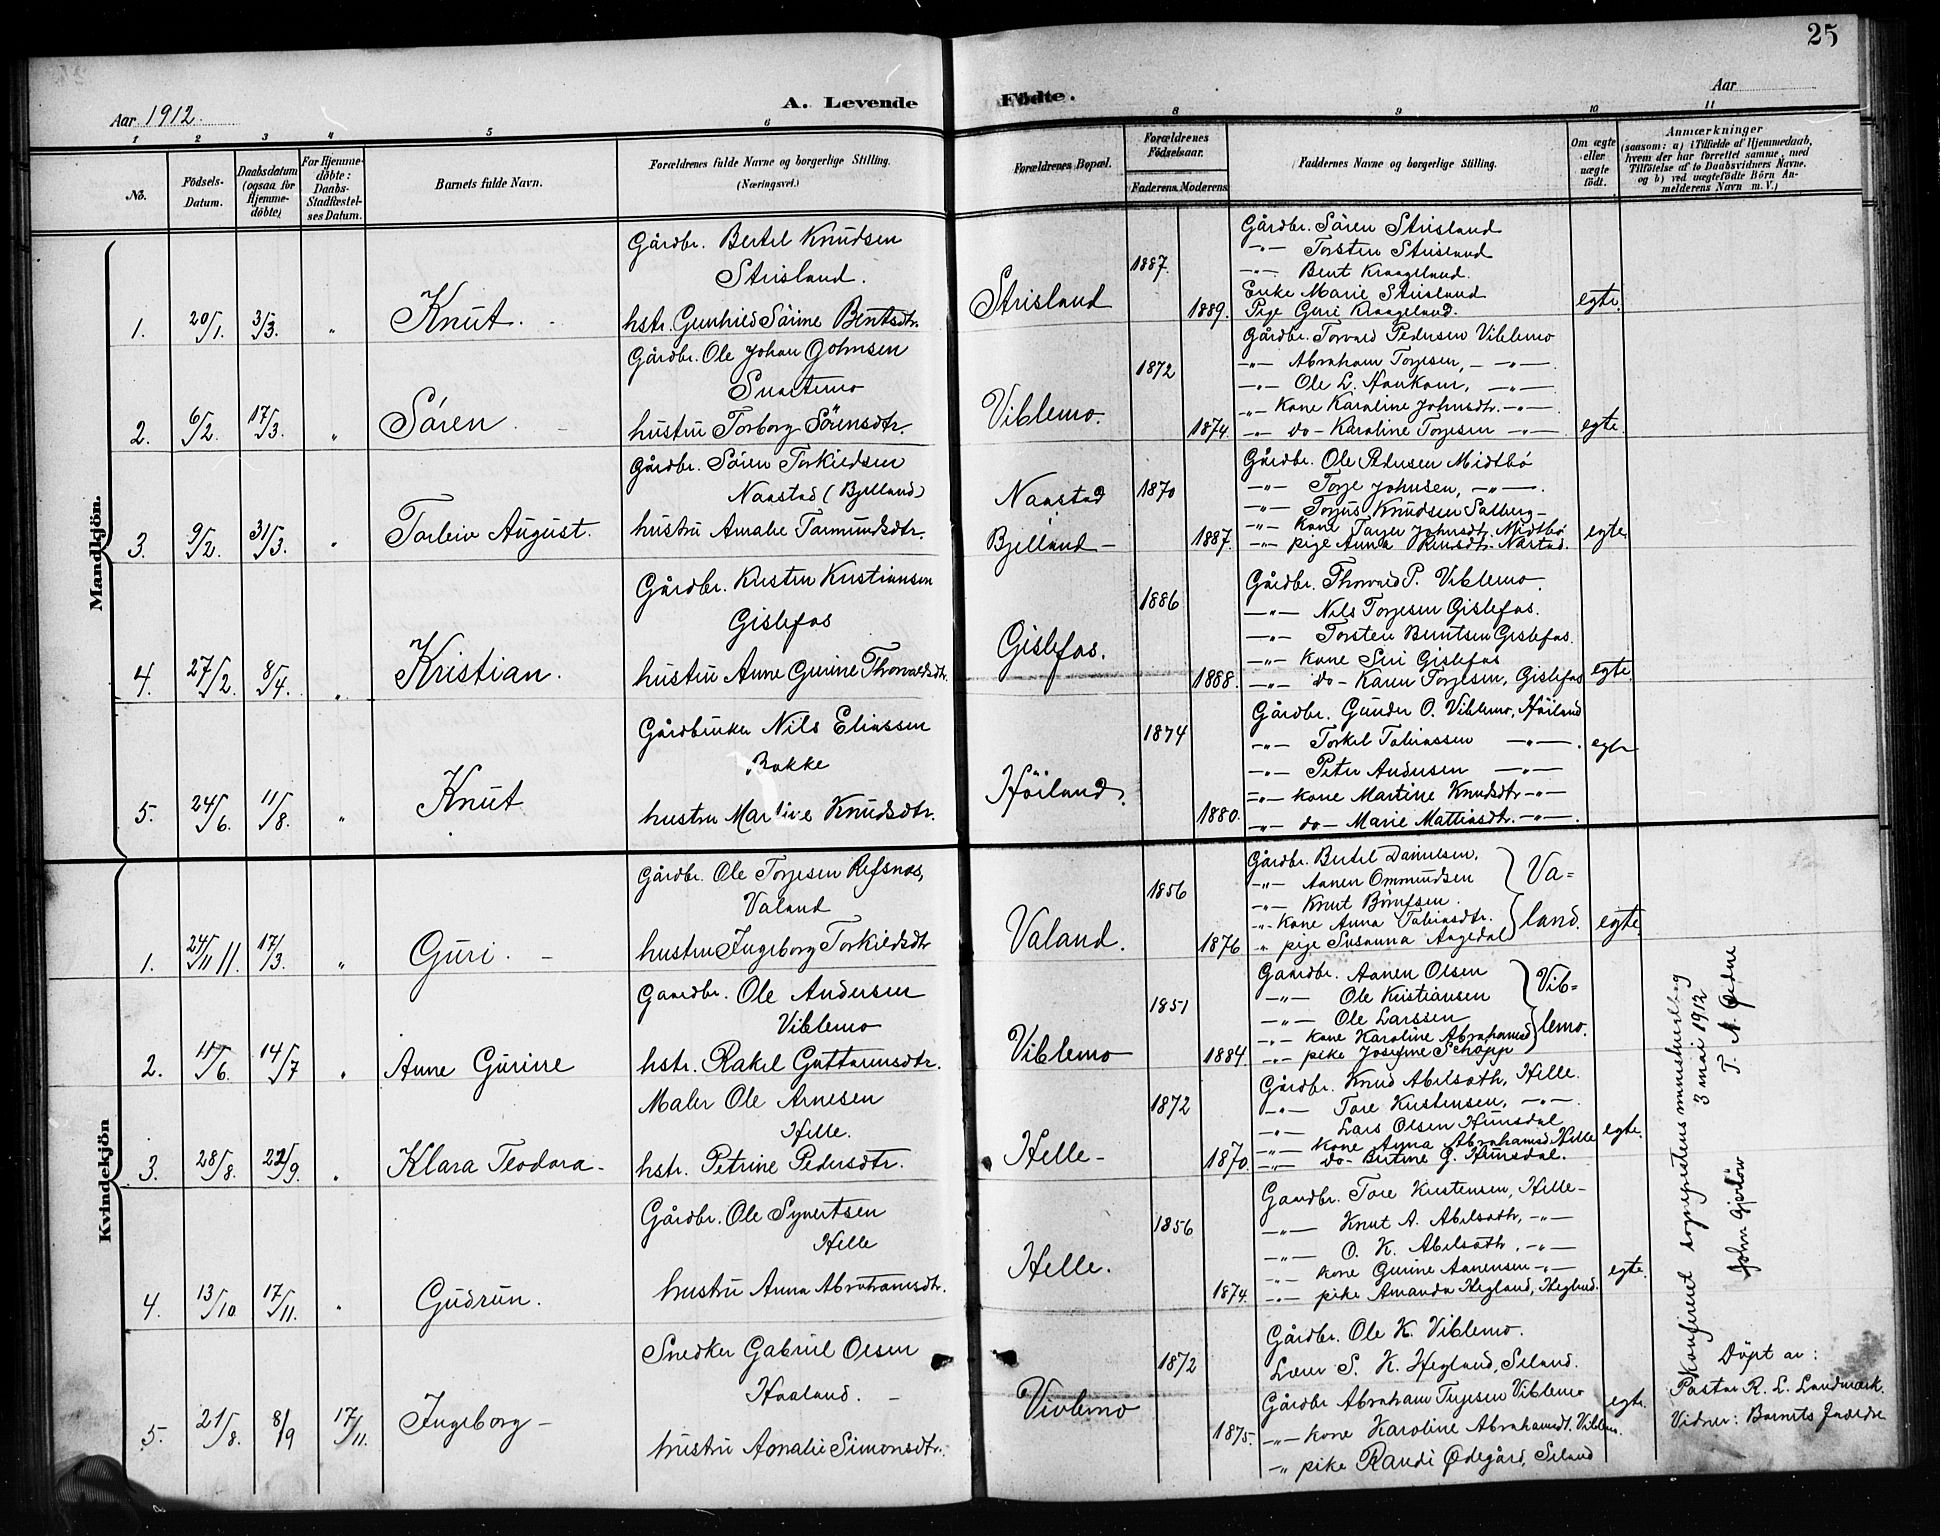 25
Aar 1912.
A. Levende
Fødte.
Aar
1 2 3 4 5 6 8 9 10 11
No.
Fødsels-
Datum.
Daabsdatum
(ogsaa for
Hjemme-
døbte)
For Hjemme-
døbte:
Daabs-
Stadfæstel-
ses Datum.
Barnets fulde Navn.
Forældrenes fulde Navne og borgerlige Stilling.
(Næringsvei.)
Forældrenes Bopæl.
Forældrenes
Fødselsaar.
Faderens. Moderens
Faddernes Navne og borgerlige Stilling.
Om ægte
eller
uægte
født.
Anmærkninger
(saasom: a) i Tilfælde af Hjemmedaab,
hvem der har forrettet samme, med
Tilføielse af to Daabsvidners Navne.
og b) ved uægtefødte Børn An-
melderens Navn m. V.)
Mandkjön.
1. 20/1. 3/3. " Knut.
Gårdbr. Bertel Knudsen
Strisland.
hstr. Gunhild Sørine Bentsdtr.
Strisland
1887.
1889.
Gårdbr. Sören Strisland
-"- Torsten Strisland
-"- Bent Kraageland.
Enke Marie Strisland
Pige Guri Kraageland.
egte.
2. 6/2. 17/3. " Sören
Gårdbr. Ole Johan Johnsen
Snartemo
hustru Torborg Sörensdtr.
Viblemo.
1872
1874.
Gårdbr. Torvald Pedersen Viblemo
-"- Abraham Torjesen, -"-
-"- Ole L. Haukom, -"-
-"- Kone Karoline Johnsdtr. -"-
-"- do - Karoline Torjesen -"-
egte.
3. 9/2. 31/3. " Torleiv August.
Gårdbr. Sören Torkildsen
Naastad (Bjelland)
hustru Amalie Tarmundsdtr.
Naastad
Bjelland -
1870
1887.
Gårdbr. Ole Pedersen Midtbö
-"- Torje Johnsen, -"-
-"- Torjus Knudsen Solberg-
-"- kone Tarjer Johnsdtr. Midtbö
-"- pige Anna Knudsdtr. Nastad.
egte
4. 27/2. 8/4. " Kristian.
Gårdbr. Kristen Kristiansen
Gislefos
hustru Anne Gurine Thorvaldsdtr.
Gislefos.
1886
1888.
Gårdbr. Thorvald P. Viblemo.
-"- Nils Torjesen Gislefos.
-"- Torsten Berntsen Gislefos.
-"- kone Siri Gislefos
-"- do - Karen Torjesen, Gislefos
egte.
5. 24/6. 11/8. " Knut
Gårdbruker Nils Eliassen
Bakke
hustru Martine Knudsdtr.
Höiland.
1874
1880.
Gårdbr. Gunder O. Viblemo, Höiland
-"- Torkel Tobiassen -"-.
-"- Peter Andersen -"-
-"- kone Martine Knudsdtr -"-
-"- do - Marie Mattiasdtr. -"-.
egte
Kvindekjön
1. 24/11 11. 17/3. " Guri.
Gårdbr. Ole Torjesen Refsnes,
Valand
hustru Ingeborg Torkildsdtr
Valand.
1856
1876
Gårdbr. Bertel Danielsen.
-"- Aanen Ommundsen
-"- Knut Berntsen.
-"- Kone Anna Tobiasdtr.
" pige Susanna Aagedal
Va=
land.
egte.
2. 11/6. 14/7 " Anne Gurine
Gaardbr. Ole Andersen
Viblemo
hstr. Rakel Guttormsdtr.
Viblemo
1851
1884
Gaardbr. Aanen Olsen
-"- Ole Kristiansen
-"- Ole Larssen
-"- kone Karoline Abrahamsd
-"- pike Josefine Schöpp
Vib=
lemo.
3. 28/8. 22/9. " Klara Teodora -
Maler Ole Arnesen
Helle.
hstr. Petrine Pedersdtr.
Helle -
1872
1870.
Gårdbr. Knud Abelseth, Helle.
-"- Tore Kristensen, -"-
-"- Lars Olsen Hunsdal
-"- kone Anna Abrahamsd Helle
-"- do - Bertine G. Hunsdal.
egte.
4. 13/10 17/11. " Gudrun.
Gårdbr. Ole Syvertsen
Helle
hustru Anna Abrahamsdtr.
Helle.
1856
1874.
Gaardbr. Tore Kristensen, Helle-
-"- Knut A. Abelseth, -"-
-"- O. K. Abelseth, -"-
-"- kone Gurine Aanensen -"-
-"- pike Amanda Hegland, Hegland.
egte.
5. 21/8. 8/9 17/11. Ingeborg -
Snedker Gabriel Olsen
Haaland. -
hustru Amalie Simonsdtr.
Vivlemo
1872
1875.
Gårdbr. Ole K. Viblemo.
Lærer S. K. Hegland, Seland.
Gårdbr Abraham Terjesen Viblemo
-"- kone Karoline Abrahamsdt. Viblem.
-"- pike Randi Ødegård, Seland
egte.
Döpt av:
Pastor R. L. Landmark.
Vidner: Barnets Foreldre
Konfereret sogneprestens ministerialbog
3 mai 1912
John Gjerlöw T. A. Øidne